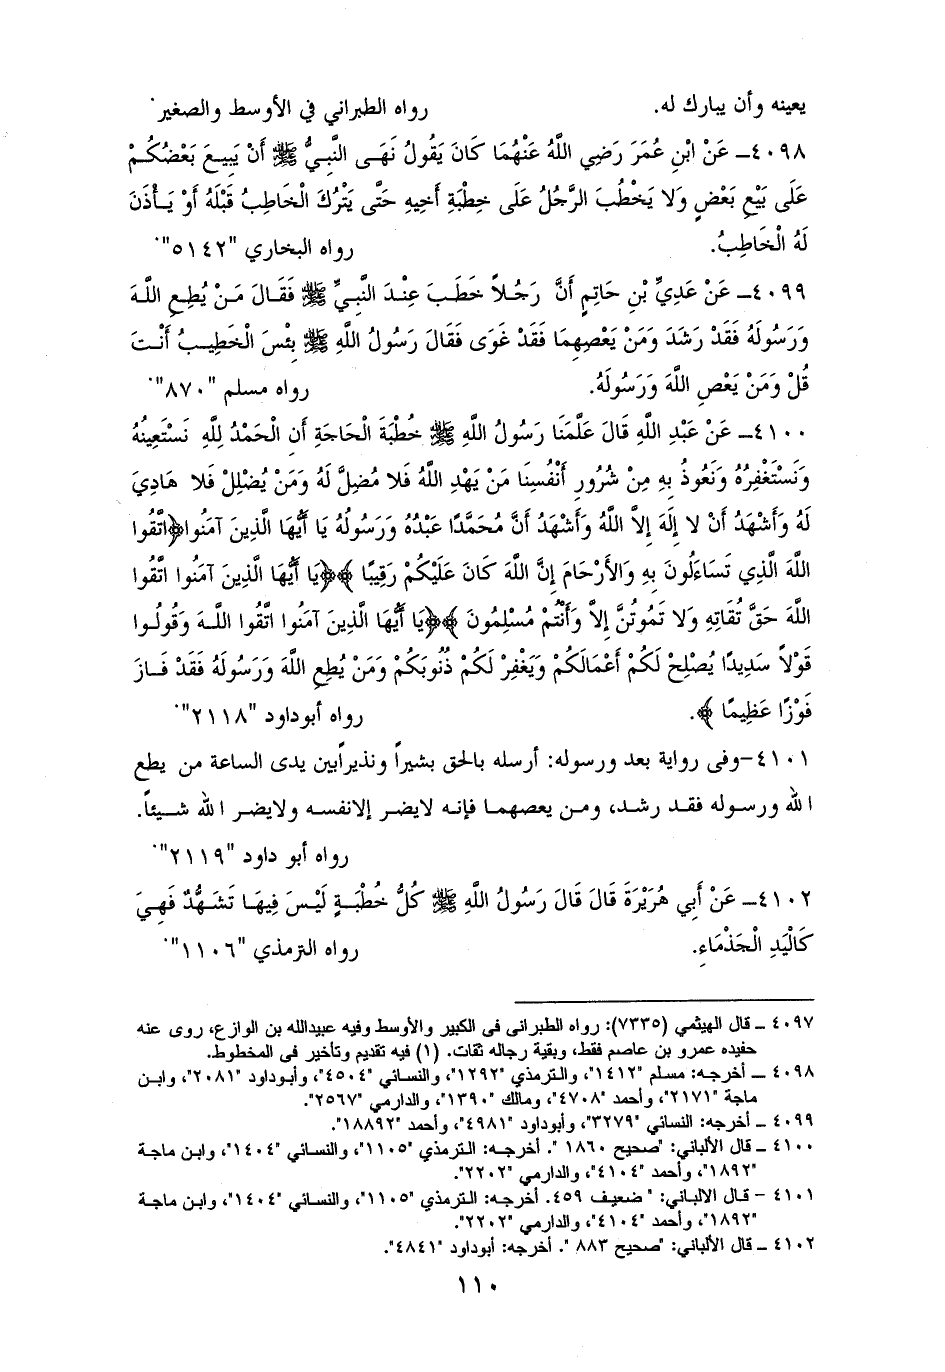 يعينه وأن يبارك له. رواه الطبراني في الأوسط والصغير.
٤٠٩٨ــ عَنْ ابْنِ عُمَرَ رَضِي اللَّهُ عَنْهُمَا كَانَ يَقُولُ نَهَى النَّبِيُّ ﷺ أَنْ يَبِيعَ بَعْضُكُمْ
عَلَى بَيْعِ بَعْضٍ وَلا يَخْطُبَ الرَّجُلُ عَلَى خِطْبَةِ أَخِيهِ حَتَّى يَتْرُكَ الْخَاطِبُ قَبْلَهُ أَوْ يَأْذَنَ
لَهُ الْخَاطِبُ. رواه البخاري "٥١٤٢".
٤٠٩٩ــ عَنْ عَدِيِّ بْنِ حَاتِمٍ أَنَّ رَجُلاً خَطَبَ عِنْدَ النَّبِيِّ ﷺ فَقَالَ مَنْ يُطِعِ اللَّهَ
وَرَسُولَهُ فَقَدْ رَشَدَ وَمَنْ يَعْصِهِمَا فَقَدْ غَوَى فَقَالَ رَسُولُ اللَّهِ ﷺ بِئْسَ الْخَطِيبُ أَنْتَ
قُلْ وَمَنْ يَعْصِ اللَّهَ وَرَسُولَهُ. رواه مسلم "٨٧٠".
٤١٠٠ــ عَنْ عَبْدِ اللَّهِ قَالَ عَلَّمَنَا رَسُولُ اللَّهِ ﷺ خُطْبَةَ الْحَاجَةِ أَنِ الْحَمْدُ لِلَّهِ نَسْتَعِينُهُ
وَنَسْتَغْفِرُهُ وَنَعُوذُ بِهِ مِنْ شُرُورِ أَنْفُسِنَا مَنْ يَهْدِ اللَّهُ فَلا مُضِلَّ لَهُ وَمَنْ يُضْلِلْ فَلا هَادِيَ
لَهُ وَأَشْهَدُ أَنْ لا إِلَهَ إِلاَّ اللَّهُ وَأَشْهَدُ أَنَّ مُحَمَّدًا عَبْدُهُ وَرَسُولُهُ يَا أَيُّهَا الَّذِينَ آمَنُوا﴿اتَّقُوا
اللَّهَ الَّذِي تَسَاءَلُونَ بِهِ وَالأَرْحَامَ إِنَّ اللَّهَ كَانَ عَلَيْكُمْ رَقِيبًا ﴾﴿يَا أَيُّهَا الَّذِينَ آمَنُوا اتَّقُوا
اللَّهَ حَقَّ تُقَاتِهِ وَلا تَمُوتُنَّ إِلاَّ وَأَنْتُمْ مُسْلِمُونَ ﴾﴿يَا أَيُّهَا الَّذِينَ آمَنُوا اتَّقُوا اللَّهَ وَقُولُوا
قَوْلاً سَدِيدًا يُصْلِحْ لَكُمْ أَعْمَالَكُمْ وَيَغْفِرْ لَكُمْ ذُنُوبَكُمْ وَمَنْ يُطِعِ اللَّهَ وَرَسُولَهُ فَقَدْ فَازَ
فَوْزًا عَظِيمًا ﴾. رواه أبوداود "٢١١٨".
٤١٠١–وفى رواية بعد ورسوله: أرسله بالحق بشيراً ونذيراًبين يدى الساعة من يطع
الله ورسوله فقد رشد، ومن يعصهما فإنه لايضر إلانفسه ولايضر الله شيئاً.
رواه أبو داود "٢١١٩".
٤١٠٢ــ عَنْ أَبِي هُرَيْرَةَ قَالَ قَالَ رَسُولُ اللَّهِ ﷺ كُلُّ خُطْبَةٍ لَيْسَ فِيهَا تَشَهُّدٌ فَهِيَ
كَالْيَدِ الْجَذْمَاءِ. رواه الترمذي "١١٠٦".
٤٠٩٧ ــ قال الهيثمي (٧٣٣٥): رواه الطبرانى فى الكبير والأوسط وفيه عبيدالله بن الوازع، روى عنه
حفيده عمرو بن عاصم فقط، وبقية رجاله ثقات. (١) فيه تقديم وتأخير فى المخطوط.
٤٠٩٨ ــ أخرجه: مسلم "١٤١٢"، والترمذي "١٢٩٢"، والنسائي "٤٥٠٤"، وأبوداود "٢٠٨١"، وابن
ماجة "٢١٧١"، وأحمد "٤٧٠٨"، ومالك "١٣٩٠"، والدارمي "٢٥٦٧".
٤٠٩٩ ــ أخرجه: النسائي "٣٢٧٩"، وأبوداود "٤٩٨١"، وأحمد "١٨٨٩٢".
٤١٠٠ ــ قال الألباني: "صحيح ١٨٦٠ ". أخرجه: الترمذي "١١٠٥"، والنسائي "١٤٠٤"، وابن ماجة
"١٨٩٢"، وأحمد "٤١٠٤"، والدارمي "٢٢٠٢".
٤١٠١ – قال الالباني: " ضعيف ٤٥٩. أخرجه: الترمذي "١١٠٥"، والنسائي "١٤٠٤"، وابن ماجة
"١٨٩٢"، وأحمد "٤١٠٤"، والدارمي "٢٢٠٢".
٤١٠٢ ــ قال الألباني: "صحيح ٨٨٣ ". أخرجه: أبوداود "٤٨٤١".
١١٠